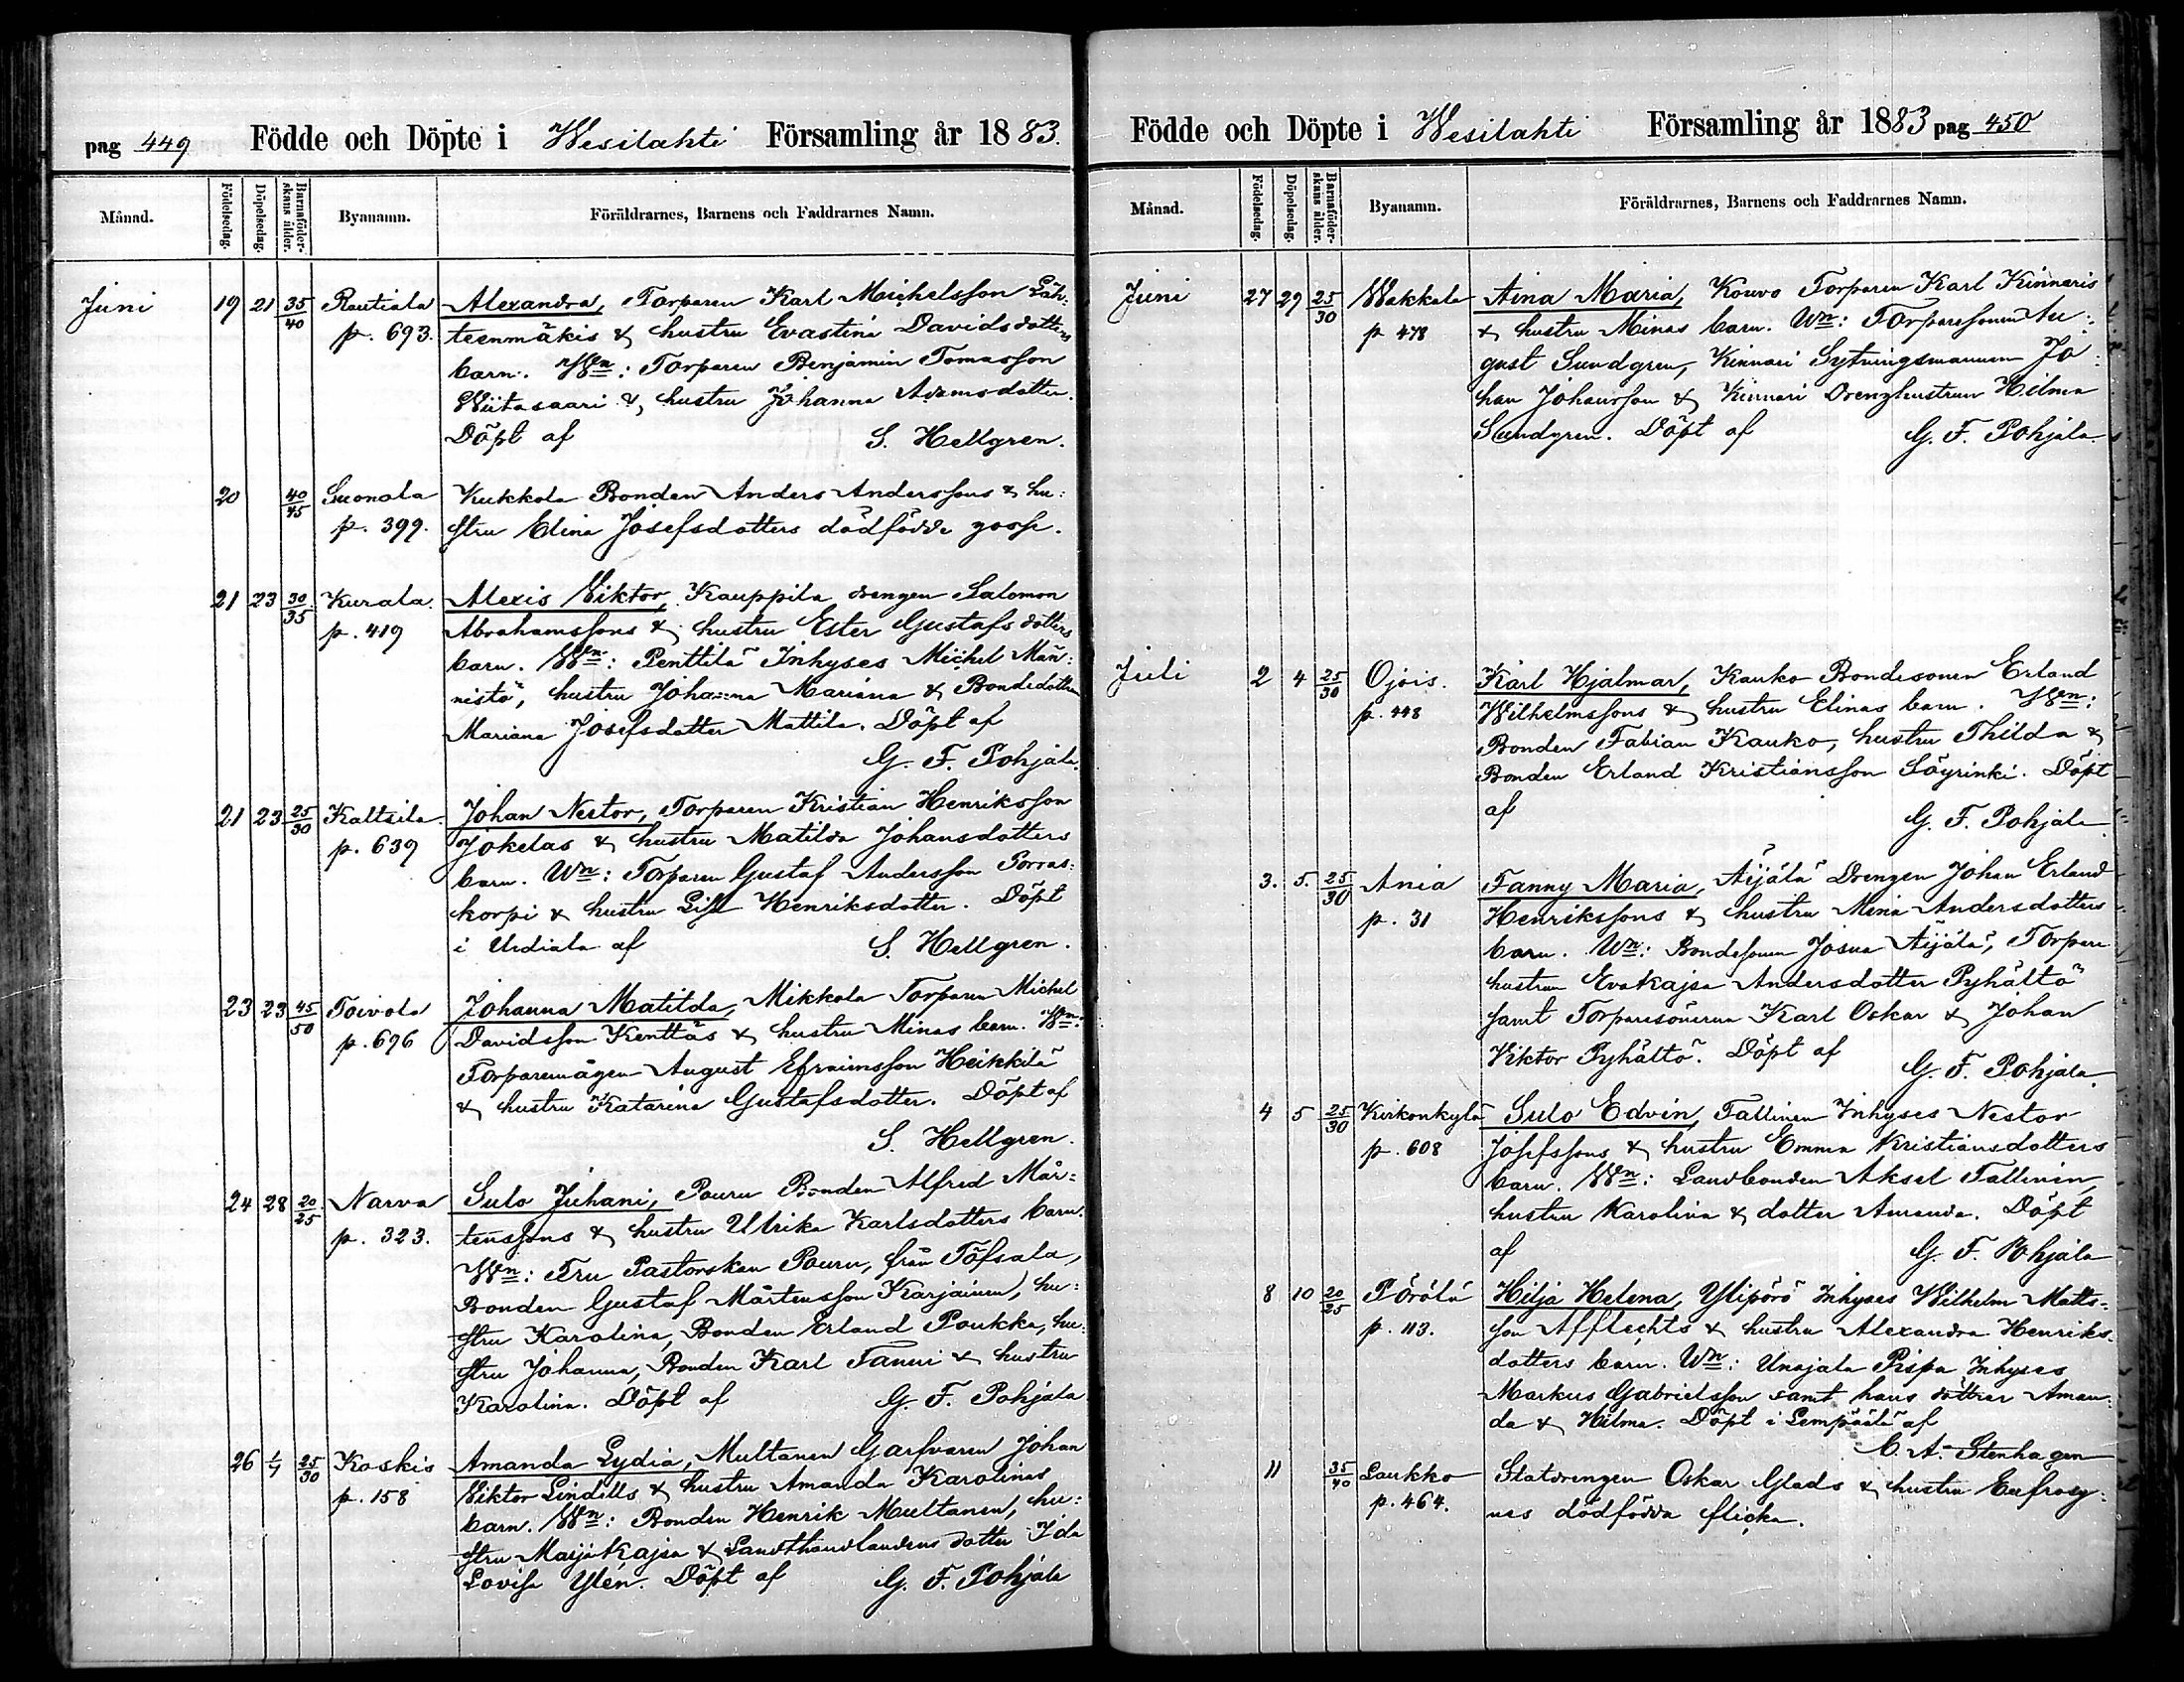 pag 449 Födde och Döpte i Wesilahti Församling år 1883.
Månad. Födelsedag. Döpelsedag. Barnaföderskans ålder. Byanamn. Föräldrarnes, Barnens och Faddrarnes Namn.
Juni 19 21 35/40 Rautiala Alexandra, Torparen Karl Maichelsson Läh:
p. 693. teenmäkis & hustru Evastina Davidsdotters
barn. Wn: Torparen Benjamin Tomasson
Wiitasaari & hustru Johanna Adamsdotter.
Döpt af S. Hellgren.
20 40/45 Suonala Kukkola Bonden Anders Anderssons & hu:
p. 399. stru Elina Josefsdotters dödfödde gosse.
21 23 30/35 Kurala. Alexis Viktor, Kauppila drengen Salomon
p. 419 Abrahamssons & hustru Ester Gustafsdotters
barn. Wn: Penttilä Inhyses Michel Män:
nistö, hustru Johanna Mariana & Bondedottren
Mariana Josefsdotter Mattila. Döpt af
G. F. Pohjala.
21 23 25/30 Kaltsila. Johan Nestor, Torparen Kristian Henriksson
p. 639 Jokelas & hustru Matilda Johansdotters
barn. Wn: Torparen Gustaf Andersson Porras:
korpi & hustru Lisa Henriksdotter. Döpt
i Urdiala af S. Hellgren.
23 23 45/50 Toivola Johanna Matilda, Mikkola Torparen Michel
p. 696 Davidsson Kenttäs & hustru Minas barn. Wn:
Torparemågen August Efraimsson Heikkilä
& hustru Katarina Gustafsdotter. Döpt af
S. Hellgren.
24 28 20/25 Narva Sulo Juhani, Pouru Bonden Alfred Mår:
p. 323. tenssons & hustru Ulrika Karlsdotters barn.
Wn: Fru Pastorskan Pouru, från Töfsala,
Bonden Gustaf Mårtensson Karjainen, hu:
stru Karolina, Bonden Erland Poukka, hu:
stru Johanna, Bonden Karl Tanni & hustru
Karolina. Döpt af G. F. Pohjala
26 1/7 25/30 Koskis Amanda Lydia, Multanen Garfvaren Johan
p. 158 Viktor Lindells & hustru Amanda Karolinas
barn. Wn: Bonden Henrik Multanen, hu:
stru Maija Kajsa & Landthandlandens dotter Ida
Lovisa Ylén. Döpt af G. F. Pohjala
Födde och Döpte i Wesilahti Församling år 1883 pag 450
Månad. Födelsedag. Döpelsedag. Barnaföderskans ålder. Byanamn. Föräldrarnes, Barnens och Faddrarnes Namn.
Juni 27 29 25/30 Wakkala Aina Maria, Kouvo Torparen Karl Kinnaris
p 478 & hustru Minas barn. Wn: Torparesonen Au:
gust Sundgren, Kinnari Sytningsmannen Jo:
han Johansson & Kinnari Drenghustrun Hilma
Sundgren. Döpt af G. F. Pohjala.
Juli 2 4 25/30 Ojois. Karl Hjalmar, Kauko Bondesonen Erland
p. 448 Wilhelmssons & hustru Elinas barn. Wn:
Bonden Fabian Kauko, hustru Thilda &
Bonden Erland Kristiansson Söyrinki. Döpt
af G. F. Pohjala.
3. 5. 25/30 Ania Fanny Maria, Äijälä Drengen Johan Erland
p. 31 Henrikssons & hustru Mina Andersdotters
barn. Wn: Bondesonen Josua Äijälä, Torpare
hustrun Evakajsa Andersdotter Pyhältö
samt Torparesönerna Karl Oskar & Johan
Viktor Pyhältö. Döpt af G. F. Pohjala.
4 5 25/30 Kirkonkylä Sulo Edvin, Tallinen Inhyses Nestor
p. 608 Josefssons & hustru Emma Kristiansdotters
barn. Wn: Landbonden Aksel Tallinen,
hustru Karolina & dotter Amanda. Döpt
af G. F. Pohjala
8 10 20/25 Pörölä Hilja Helena, Ylipörö Inhyses Wilhelm Matts-
p. 113. son Afflechts & hustru Alexandra Henriks-
dotters barn. Wn: Unajala Pispa Inhyses
Markus Gabrielsson samt hans döttrar Aman:
da & Hilma. Döpt i Lempäälä af
C. A. Stenhagen
11 35/40 Laukko Statdrengen Oskar Glads & hustru Eufrosy:
p. 464. nes dödfödda flicka.